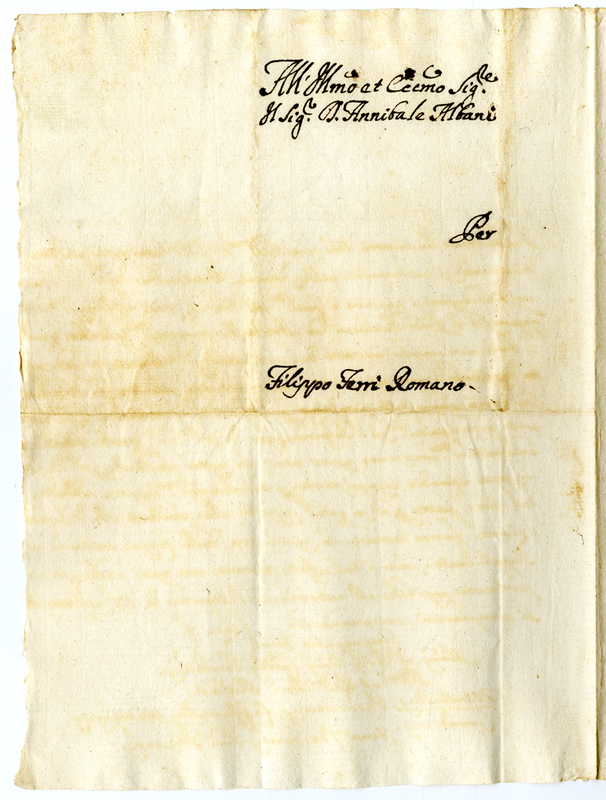 All' Illmo et Eccmo Sigre
Il Sigr D. Annibale Albani
Per
Filippo Ferri Romano